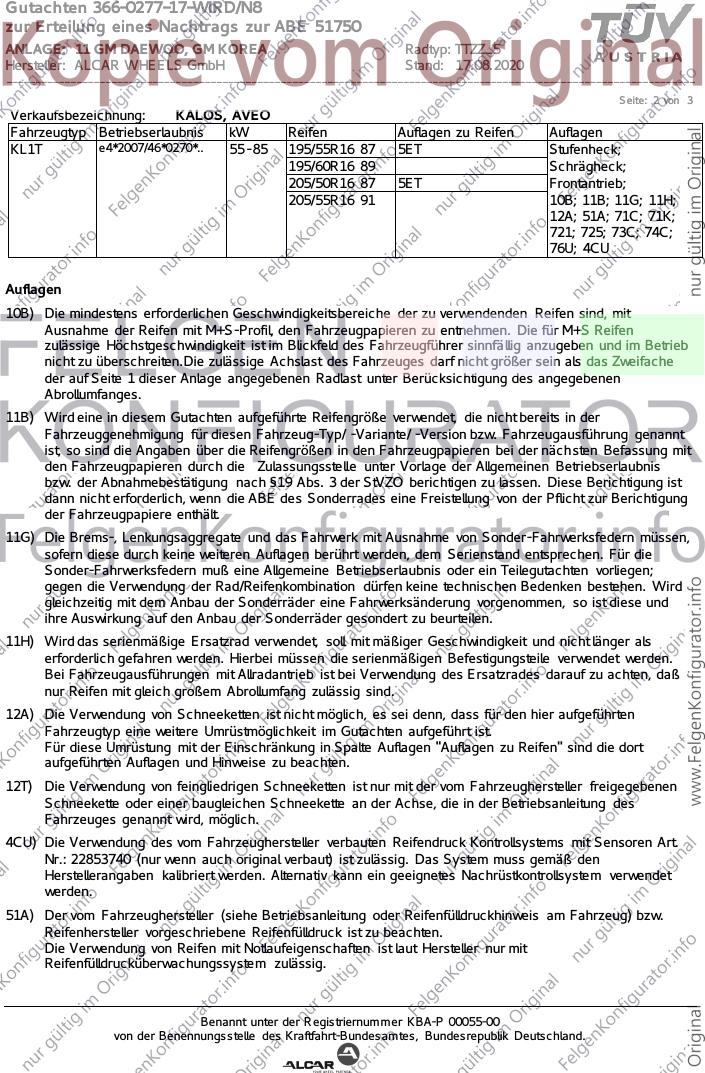 Gutachten 366-0277-17-WIRD/N8
zur Erteilung eines Nachtrags zur ABE 51750
ANLAGE: 11 GM DAEWOO, GM KOREA
Radtyp: TTZZ
Hersteller: ALCAR WHEELS GmbH
Stand: 17.08.2020
TÜV
AUSTRIA
Kopie vom Original
Seite: 2 von 3
Verkaufsbezeichnung: KALOS, AVEO
Fahrzeugtyp Betriebserlaubnis kW Reifen Auflagen zu Reifen Auflagen
KL1T e4*2007/46*0270*.. 55-85 195/55R16 87 5ET Stufenheck;
195/60R16 89 Schrägheck;
205/50R16 87 5ET Frontantrieb;
205/55R16 91 10B; 11B; 11G; 11H;
12A; 51A; 71C; 71K;
721; 725; 73C; 74C;
76U; 4CU
Auflagen
10B) Die mindestens erforderlichen Geschwindigkeitsbereiche der zu verwendenden Reifen sind, mit
Ausnahme der Reifen mit M+S-Profil, den Fahrzeugpapieren zu entnehmen. Die für M+S Reifen
zulässige Höchstgeschwindigkeit ist im Blickfeld des Fahrzeugführer sinnfällig anzugeben und im Betrieb
nicht zu überschreiten.Die zulässige Achslast des Fahrzeuges darf nicht größer sein als das Zweifache
der auf Seite 1 dieser Anlage angegebenen Radlast unter Berücksichtigung des angegebenen
Abrollumfanges.
11B) Wird eine in diesem Gutachten aufgeführte Reifengröße verwendet, die nicht bereits in der
Fahrzeuggenehmigung für diesen Fahrzeug-Typ/ -Variante/-Version bzw. Fahrzeugausführung genannt
ist, so sind die Angaben über die Reifengrößen in den Fahrzeugpapieren bei der nächsten Befassung mit
den Fahrzeugpapieren durch die Zulassungsstelle unter Vorlage der Allgemeinen Betriebserlaubnis
bzw. der Abnahmebestätigung nach §19 Abs. 3 der StVZO berichtigen zu lassen. Diese Berichtigung ist
dann nicht erforderlich, wenn die ABE des Sonderrades eine Freistellung von der Pflicht zur Berichtigung
der Fahrzeugpapiere enthält.
11G) Die Brems-, Lenkungsaggregate und das Fahrwerk mit Ausnahme von Sonder-Fahrwerksfedern müssen,
sofern diese durch keine weiteren Auflagen berührt werden, dem Serienstand entsprechen. Für die
Sonder-Fahrwerksfedern muß eine Allgemeine Betriebserlaubnis oder ein Teilegutachten vorliegen;
gegen die Verwendung der Rad/Reifenkombination dürfen keine technischen Bedenken bestehen. Wird
gleichzeitig mit dem Anbau der Sonderräder eine Fahrwerksänderung vorgenommen, so ist diese und
ihre Auswirkung auf den Anbau der Sonderräder gesondert zu beurteilen.
11H) Wird das serienmäßige Ersatzrad verwendet, soll mit mäßiger Geschwindigkeit und nicht länger als
erforderlich gefahren werden. Hierbei müssen die serienmäßigen Befestigungsteile verwendet werden.
Bei Fahrzeugausführungen mit Allradantrieb ist bei Verwendung des Ersatzrades darauf zu achten, daß
nur Reifen mit gleich großem Abrollumfang zulässig sind.
12A) Die Verwendung von Schneeketten ist nicht möglich, es sei denn, dass für den hier aufgeführten
Fahrzeugtyp eine weitere Umrüstmöglichkeit im Gutachten aufgeführt ist.
Für diese Umrüstung mit der Einschränkung in Spalte Auflagen "Auflagen zu Reifen" sind die dort
aufgeführten Auflagen und Hinweise zu beachten.
12T) Die Verwendung von feingliedrigen Schneeketten ist nur mit der vom Fahrzeughersteller freigegebenen
Schneekette oder einer baugleichen Schneekette an der Achse, die in der Betriebsanleitung des
Fahrzeuges genannt wird, möglich.
4CU) Die Verwendung des vom Fahrzeughersteller verbauten Reifendruck Kontrollsystems mit Sensoren Art.
Nr.: 22853740 (nur wenn auch original verbaut) ist zulässig. Das System muss gemäß den
Herstellerangaben kalibriert werden. Alternativ kann ein geeignetes Nachrüstkontrollsystem verwendet
werden.
51A) Der vom Fahrzeughersteller (siehe Betriebsanleitung oder Reifenfülldruckhinweis am Fahrzeug) bzw.
Reifenhersteller vorgeschriebene Reifenfülldruck ist zu beachten.
Die Verwendung von Reifen mit Notlaufeigenschaften ist laut Hersteller nur mit
Reifenfülldrucküberwachungssystem zulässig.
FELGEN
KONFIGURATOR
FelgenKonfigurator.info
www.FelgenKonfigurator.info
nur gültig im Original
Benannt unter der Registriernummer KBA-P 00055-00
von der Benennungsstelle des Kraftfahrt-Bundesamtes, Bundesrepublik Deutschland.
ALCAR